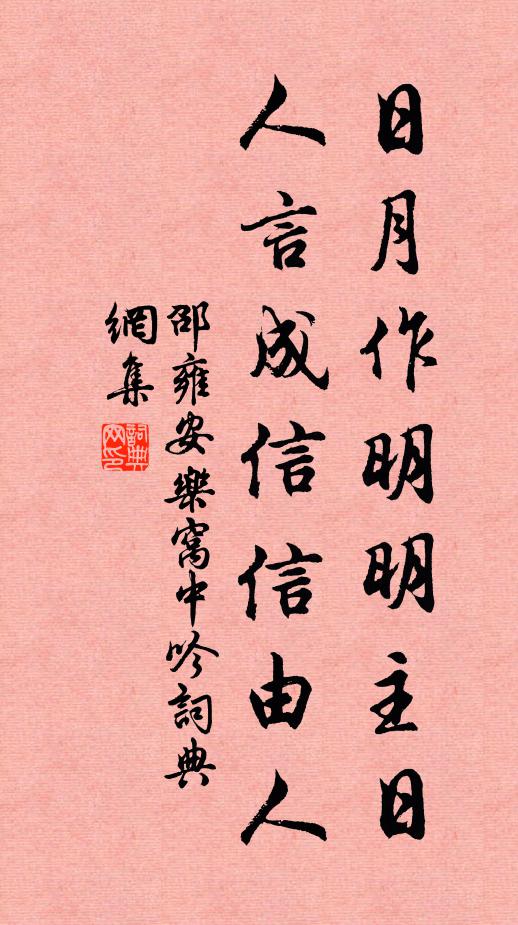 日月作明明主日
人言成信信由人
邵雍安樂窩中吟詞典
網集
詞典網印